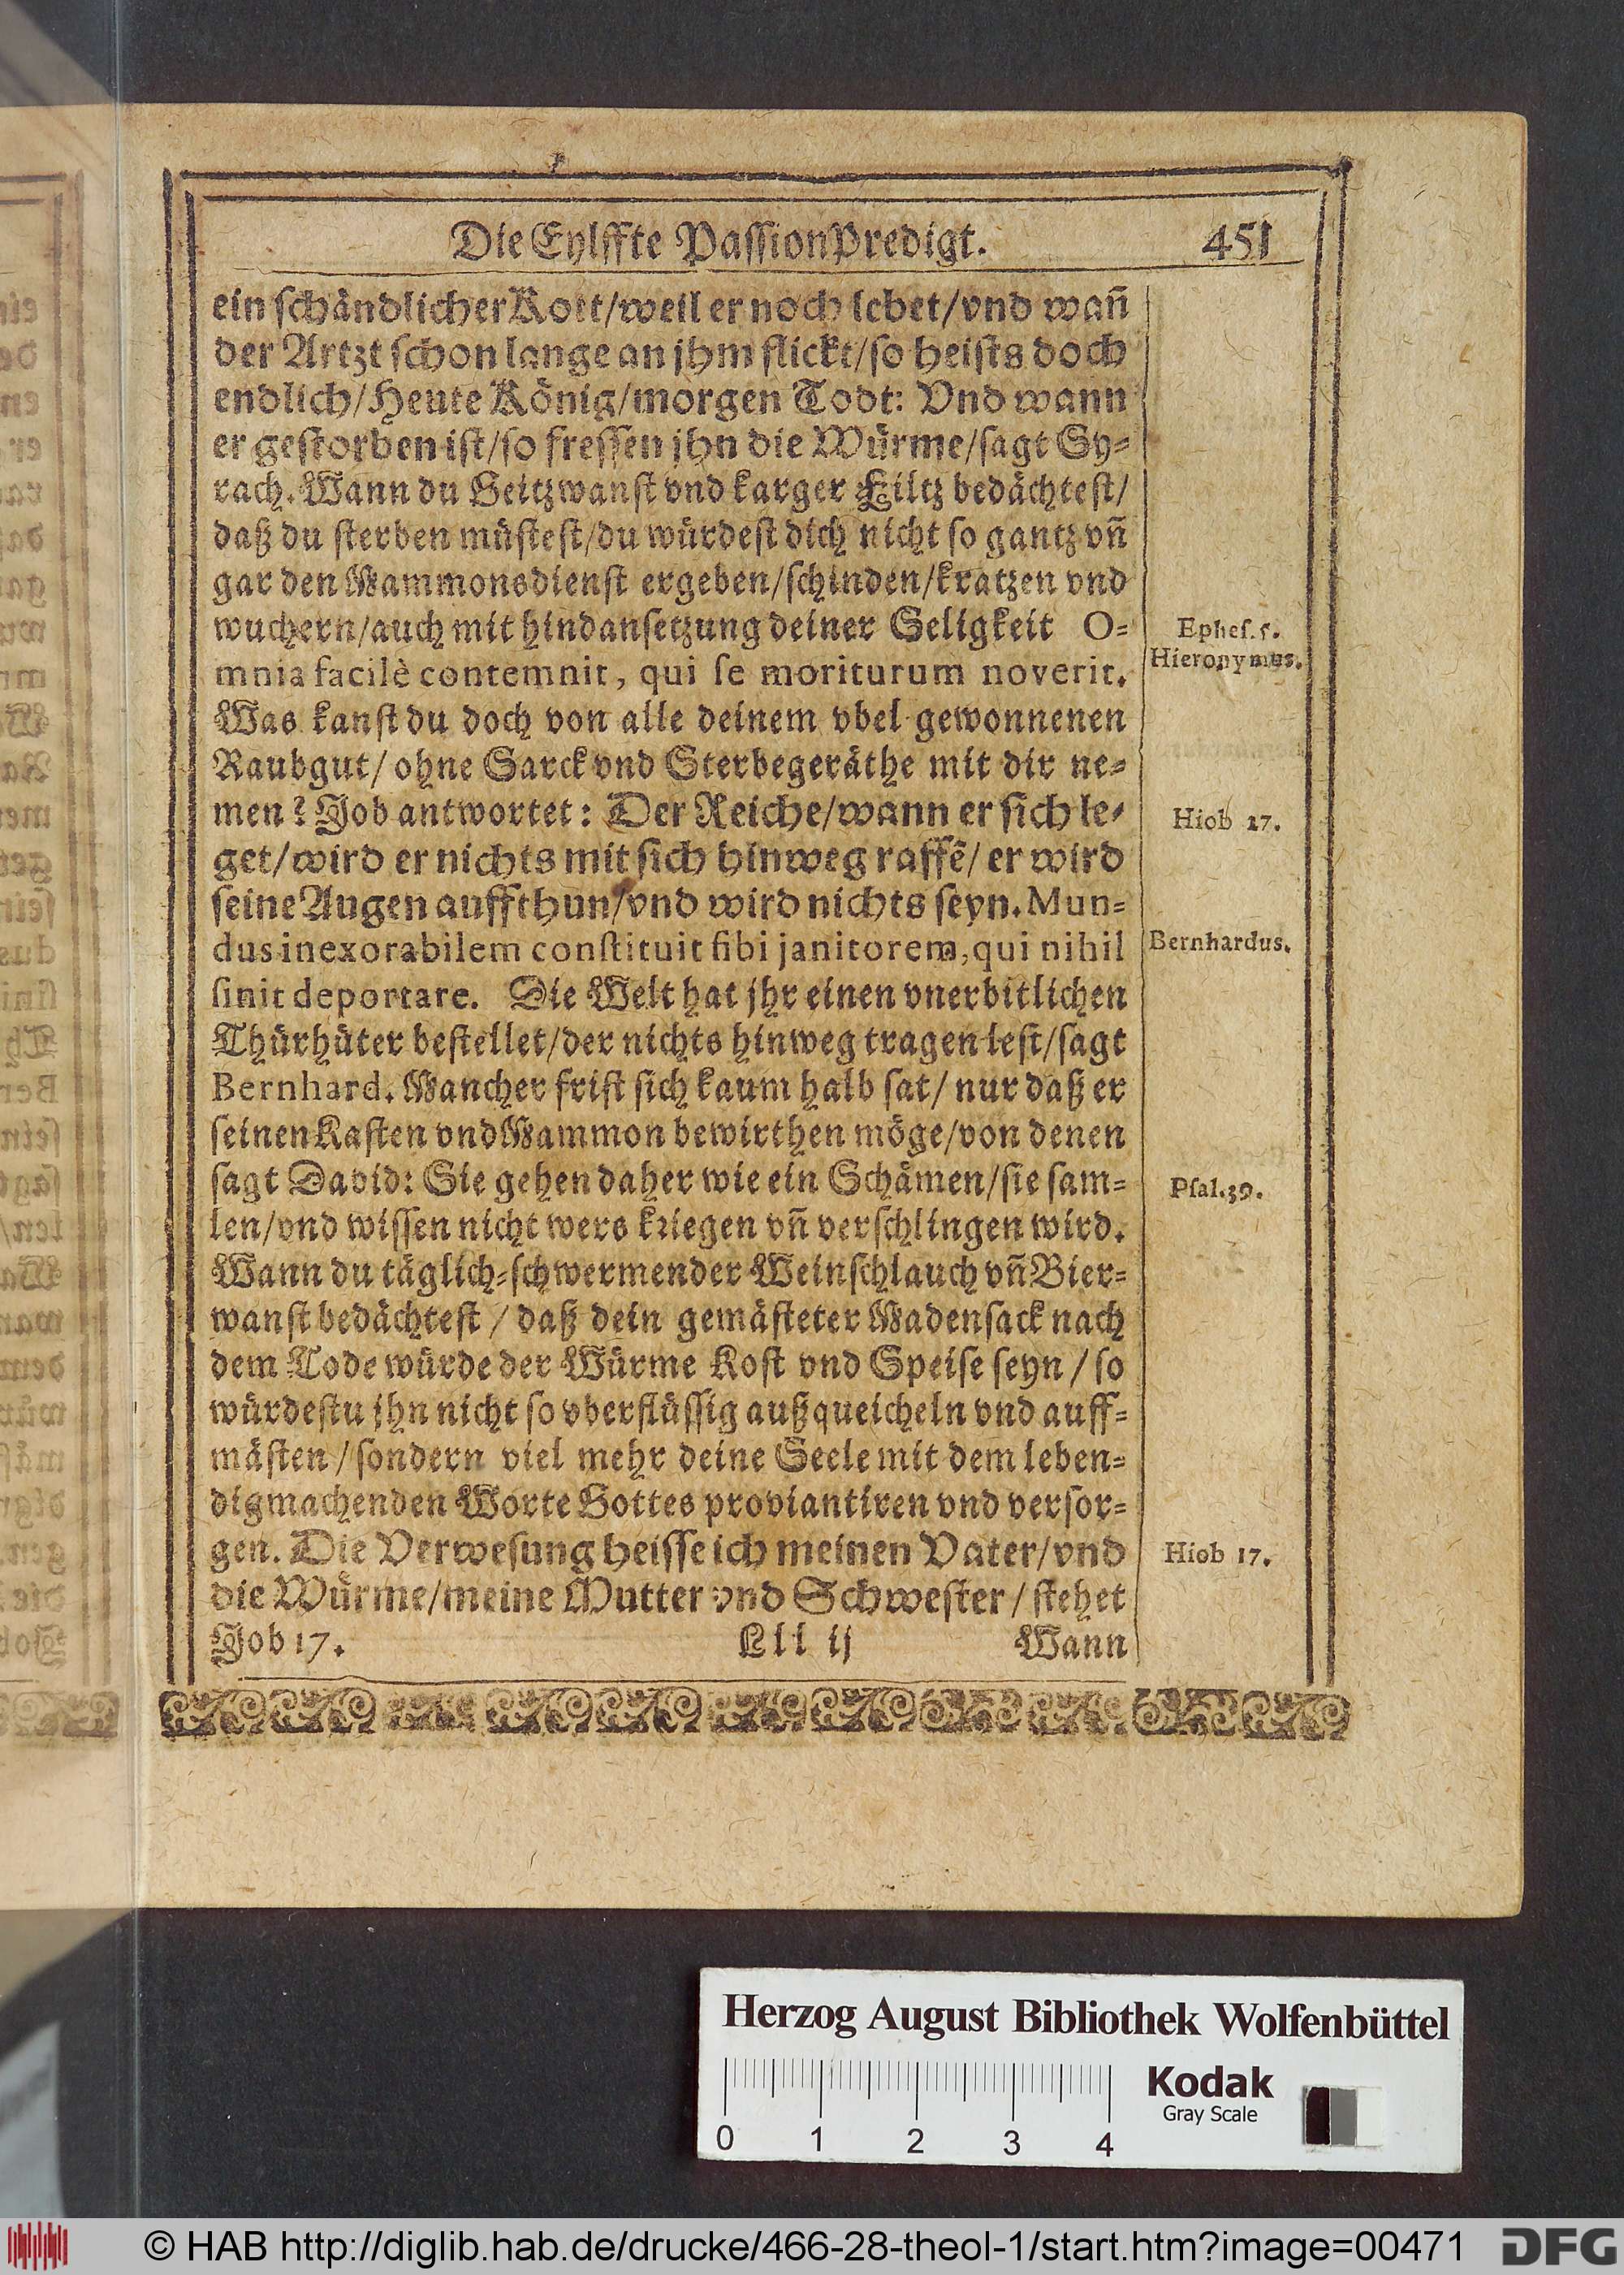 Die Eylffte PassionPredigt. 451
ein schåndlicher Kott/weil er noch lebet/vnd wañ
der Artzt schon lange an jhm flickt/so heists doch
endlich/Heute Kőnig/morgen Todt: Vnd wann
er gestorben ist/so fressen jhn die Wůrme/sagt Sy-
rach. Wann du Geitzwanst vnd karger Filtz bedåchtest/
daß du sterben můstest/du wůrdest dich nicht so gantz vñ
gar den Mammonsdienst ergeben/schinden/kratzen vnd
wuchern/auch mit hindansetzung deiner Seligkeit O-
Ephes. 5.
mnia facilè contemnit, qui se moriturum noverit.
Hieronymus.
Was kanst du doch von alle deinem vbel gewonnenen
Raubgut/ ohne Sarck vnd Sterbegeråthe mit dir ne-
men? Job antwortet: Der Reiche/wann er sich le-
Hiob 27.
get/wird er nichts mit sich hinweg raffē/ er wird
seine Augen auffthun/vnd wird nichts seyn. Mun-
dus inexorabilem constituit sibi janitorem, qui nihil
Bernhardus.
sinit deportare. Die Welt hat jhr einen vnerbitlichen
Thůrhůter bestellet/der nichts hinweg tragen lest/sagt
Bernhard. Mancher frist sich kaum halb sat/ nur daß er
seinen Kasten vnd Mammon bewirthen mőge/von denen
sagt David: Sie gehen daher wie ein Schåmen/sie sam-
Psal. 39.
len/vnd wissen nicht wers kriegen vñ verschlingen wird.
Wann du tåglich-schwermender Weinschlauch vñ Bier-
wanst bedåchtest / daß dein gemåsteter Madensack nach
dem Tode wůrde der Wůrme Kost vnd Speise seyn / so
wůrdestu jhn nicht so vberflůssig außqueicheln vnd auff-
måsten / sondern viel mehr deine Seele mit dem leben-
digmachenden Worte Gottes proviantiren vnd versor-
gen. Die Verwesung heisse ich meinen Vater/vnd
Hiob 17.
die Wůrme/meine Mutter vnd Schwester / stehet
Job 17. Lll ij Wann
Herzog August Bibliothek Wolfenbüttel
Kodak
Gray Scale
0 1 2 3 4
© HAB http://diglib.hab.de/drucke/466-28-theol-1/start.htm?image=00471
DFG